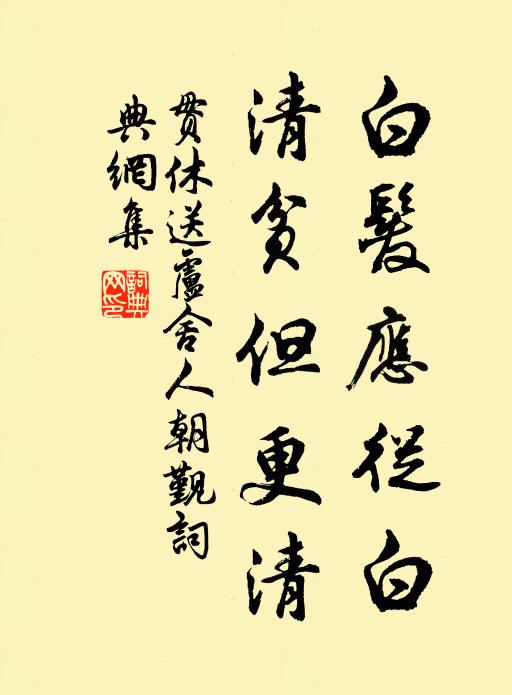 白髮應從白
清貧但更清
貫休送盧舍人朝覲詞
典網集
詞典網印